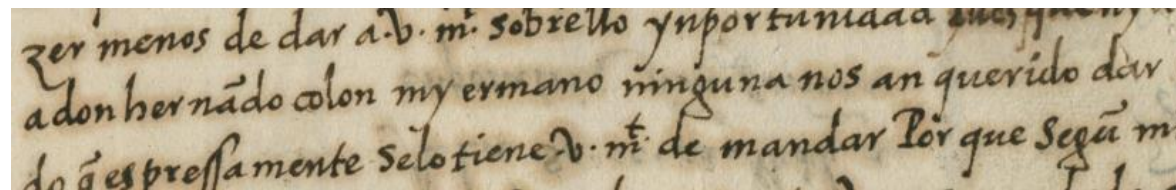 zer menos de dar a .v. mt. sobrello ynportunidad pues que ny
a don hernãdo colon my ermano ninguna nos an querido dar
do q̃ espressamente se lo tiene .v. mt. de mandar Por que Segũ m